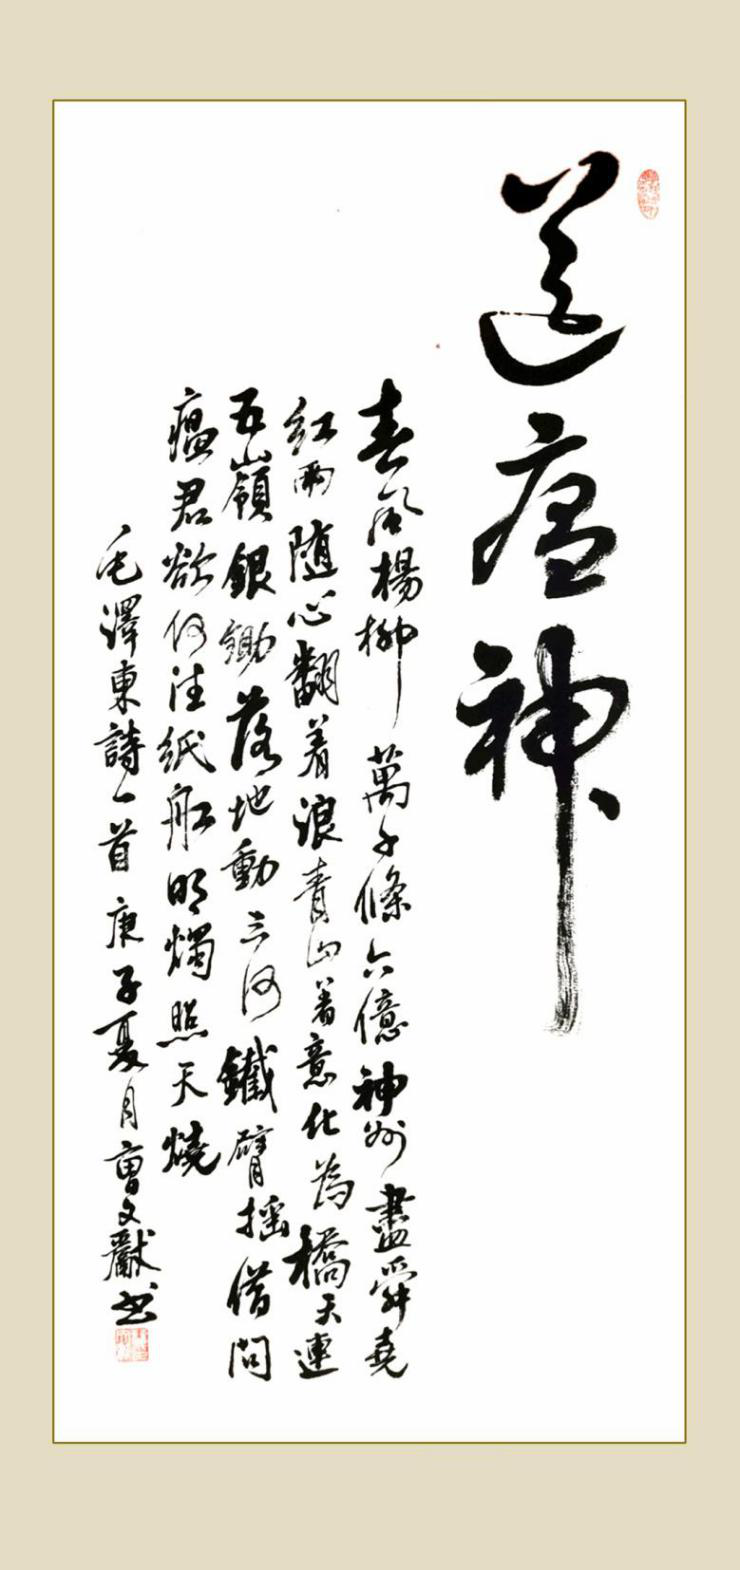 送瘟神
春風楊柳萬千條六億神州盡舜堯
紅雨随心翻着浪青山着意化為橋天連
五嶺銀鋤落地動三河鐵臂摇借問
瘟君欲何往紙舡明燭照天燒
毛澤東詩一首庚子夏月曹文獻书